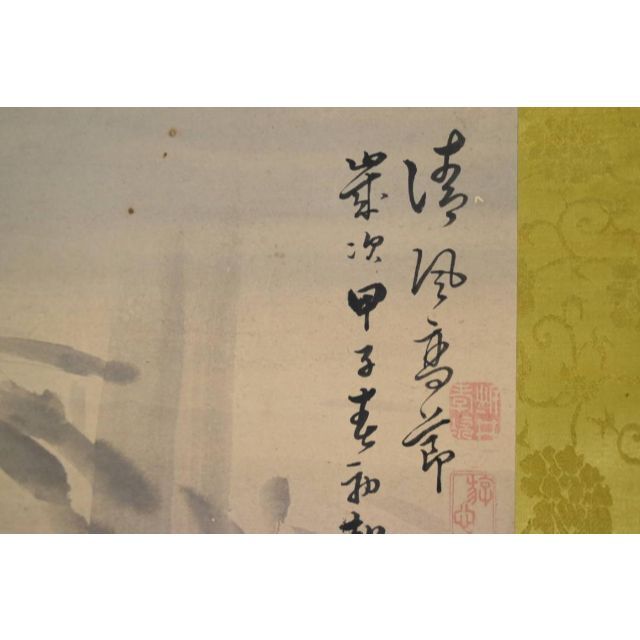 清風高節
歳次甲子春初